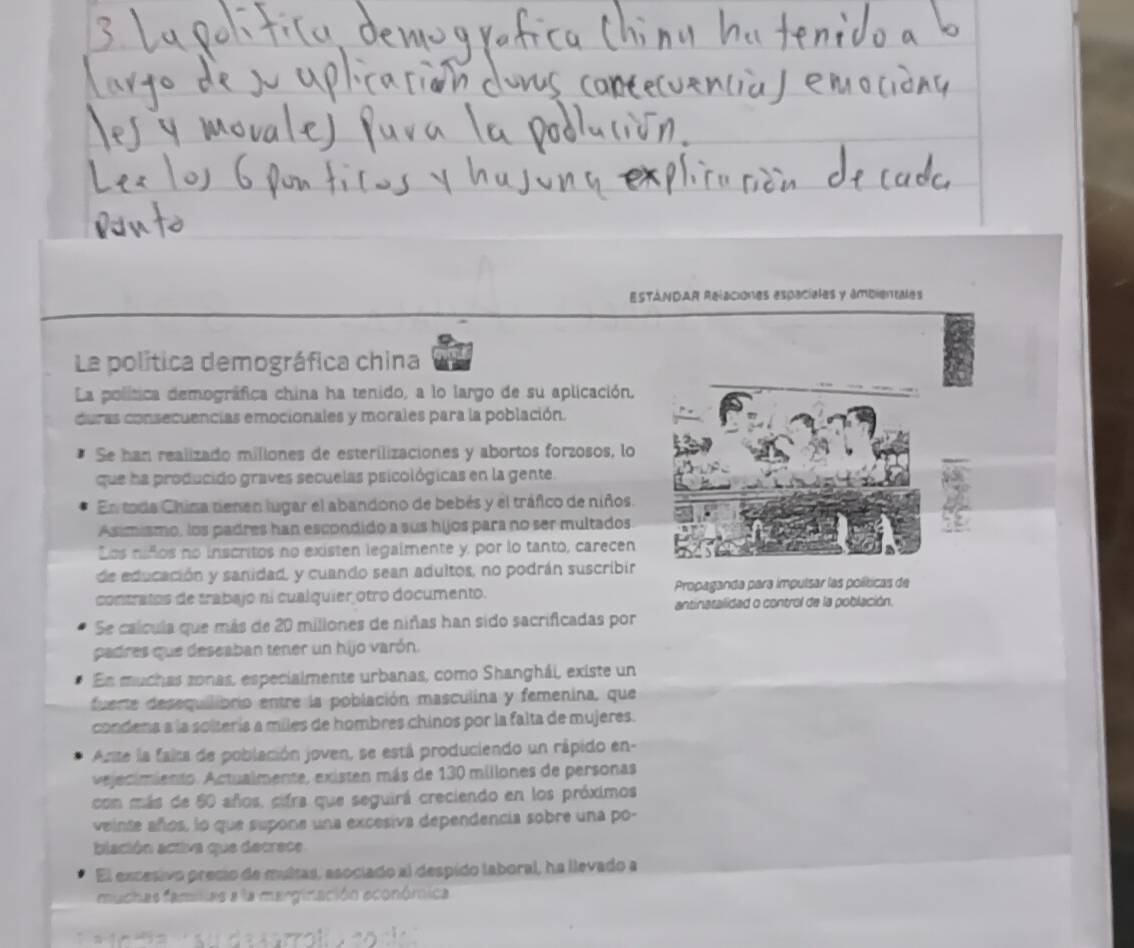 3. La politica demografica china ha tenido a lo
largo de su aplicación duras consecuencias emociona
les y morales para la población.
Lee los 6 punticos y has una explicación de cada
punto
ESTÁNDAR Relaciones espaciales y ambientales
La política demográfica china
La política demográfica china ha tenido, a lo largo de su aplicación,
duras consecuencias emocionales y morales para la población.
Se han realizado millones de esterilizaciones y abortos forzosos, lo
que ha producido graves secuelas psicológicas en la gente.
En toda China tienen lugar el abandono de bebés y el tráfico de niños.
Asimismo, los padres han escondido a sus hijos para no ser multados.
Los niños no inscritos no existen legalmente y, por lo tanto, carecen
de educación y sanidad, y cuando sean adultos, no podrán suscribir
contratos de trabajo ni cualquier otro documento.
Se calcula que más de 20 millones de niñas han sido sacrificadas por
padres que deseaban tener un hijo varón.
En muchas zonas, especialmente urbanas, como Shanghái, existe un
fuerte desequilibrio entre la población masculina y femenina, que
condena a la soltería a miles de hombres chinos por la falta de mujeres.
Ante la falta de población joven, se está produciendo un rápido en-
vejecimiento. Actualmente, existen más de 130 millones de personas
con más de 60 años, cifra que seguirá creciendo en los próximos
veinte años, lo que supone una excesiva dependencia sobre una po-
blación activa que decrece.
El excesivo precio de multas, asociado al despido laboral, ha llevado a
muchas familias a la marginación económica
Propaganda para impulsar las políticas de
antinatalidad o control de la población.